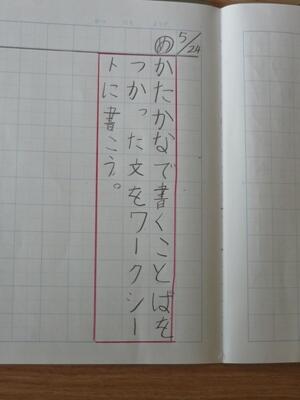 5/24
め
かたかなで書くことばを
つかった文をワークシー
トに書こう。